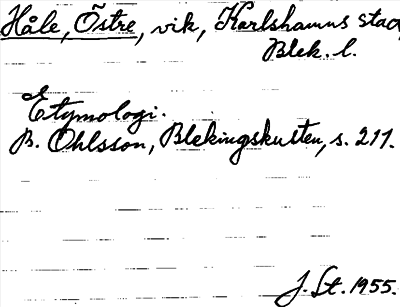 Håle, Östre, vik, Karlshamns stad,
Blek. l.
Etymologi.
B. Ohlsson, Blekingskusten, s. 211.
J. St. 1955.